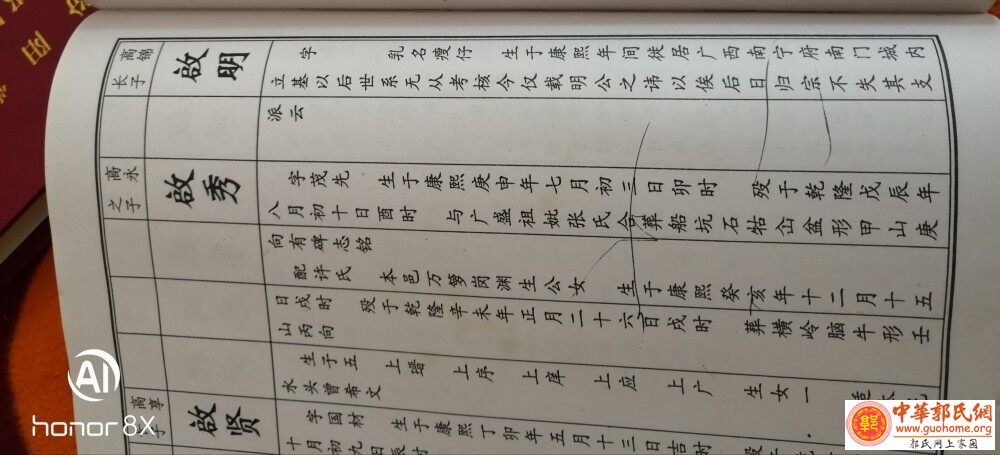 高锦
长子
啟明
字 乳名瘦仔 生于康熙年间徙居广西南宁府南门城内
立基以后世系无从考核今仅载明公之讳以俟后日归宗不失其支
派云
高永
之子
啟秀
字茂先 生于康熙庚申年七月初三日卯时 殁于乾隆戊辰年
八月初十日酉时 与广盛祖妣张氏合葬船坑石牯峃盆形甲山庚
向有碑志铭
配许氏 本邑万箩岗渊生公女 生于康熙癸亥年十二月十五
日戌时 殁于乾隆辛未年正月二十六日戌时 葬横岭脑牛形壬
山丙向
生子五 上瑨 上序 上庠 上应 上广 生女一
水头曾希文
高享
子
啟贤
字国材 生于康熙丁卯年五月十三日吉时
十月初九日辰时
阳
AI
honor 8X
中華郭氏網
www.guohome.org
郭氏网上家园